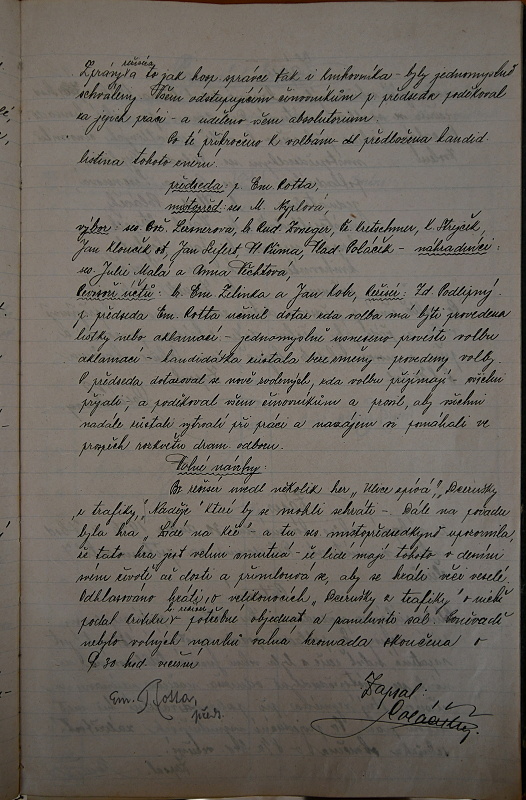 režiséra
Zprávy ta to jak hosp. správce tak i knihovníka – byly jednomyslně
schváleny Všem odstupujícím činovníkům p. předseda poděkoval
za jejich práci – a uděleno všem absolutorium.
Po té přikročeno k volbám dle předložena kandid.
listina tohoto znění.
předseda: p. Em. Rotta,
místopřed: ses. M. Nyplová,
výbor: ses. Bož. br. Rud. Br. Kretschmer, K. Strejček,
Jan Klouček ml, Jan Seifert, H. Růma, Vlad. Poláček – náhradníci:
ses. Julie Malá a Anna Píchtová,
Revisoři účtů: br. Em. Zelinka a Jan Kobr, Režiséři: Zd. Podlipný
p. předseda Em. Rotta učinil dotaz zda volba má býti provedena
lístky nebo aklamací – jednomyslně usneseno provésti volbu
aklamací – kandidátka zůstala beze změny – provedeny volby.
P. předseda dotazoval se nově zvolených, zda volbu přijímají – všichni
přijali, a poděkoval všem činovníkům a prosil, aby všichni
nadále zůstali vytrvalí při práci a navzájem si pomáhali ve
prospěch rozkvětu dram. odboru.
Volné návrhy:
Br režisér uvedl několik her „Ulice zpívá“, „Dcerušky
z trafiky,“ „Naděje“ které by se mohli sehráti – Dále na pořadu
byla hra „Lidé na kře“ – a tu ses místopředsedkyně upozornila,
že tato hra jest velmi smutná – že lidé mají tohoto v denním
svém životě až dosti a přimlouvá se, aby se hráli věci veselé.
Odhlasováno hráti o velikonocích „Dcerušky z trafiky,“ o měhž
podal br. režisér potřebné objednat a pamluviti sál. Poněvadž
nebylo volných návrhů valná hromada skončena o
9.30 hod večerní
Em. Rotta,
před.
Zapsal:
Poláček